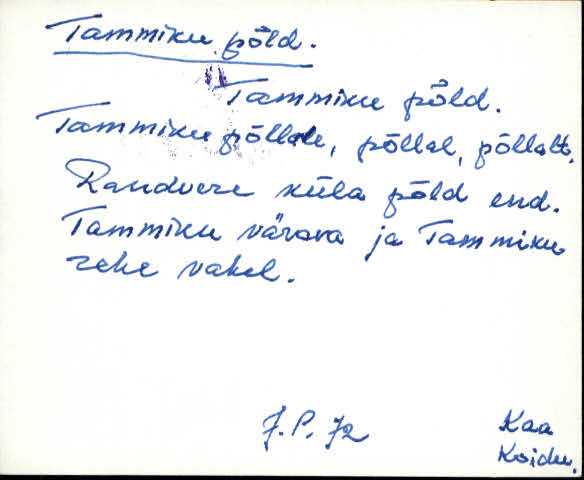 Tammiku põld.
Tammiku põld.
Tammiku põllale, põllal, põllalt.
Randvere küla põld end.
Tammiku värava ja Tammiku
rehe vahel.
J.P. 72
Kaa
Koidu.